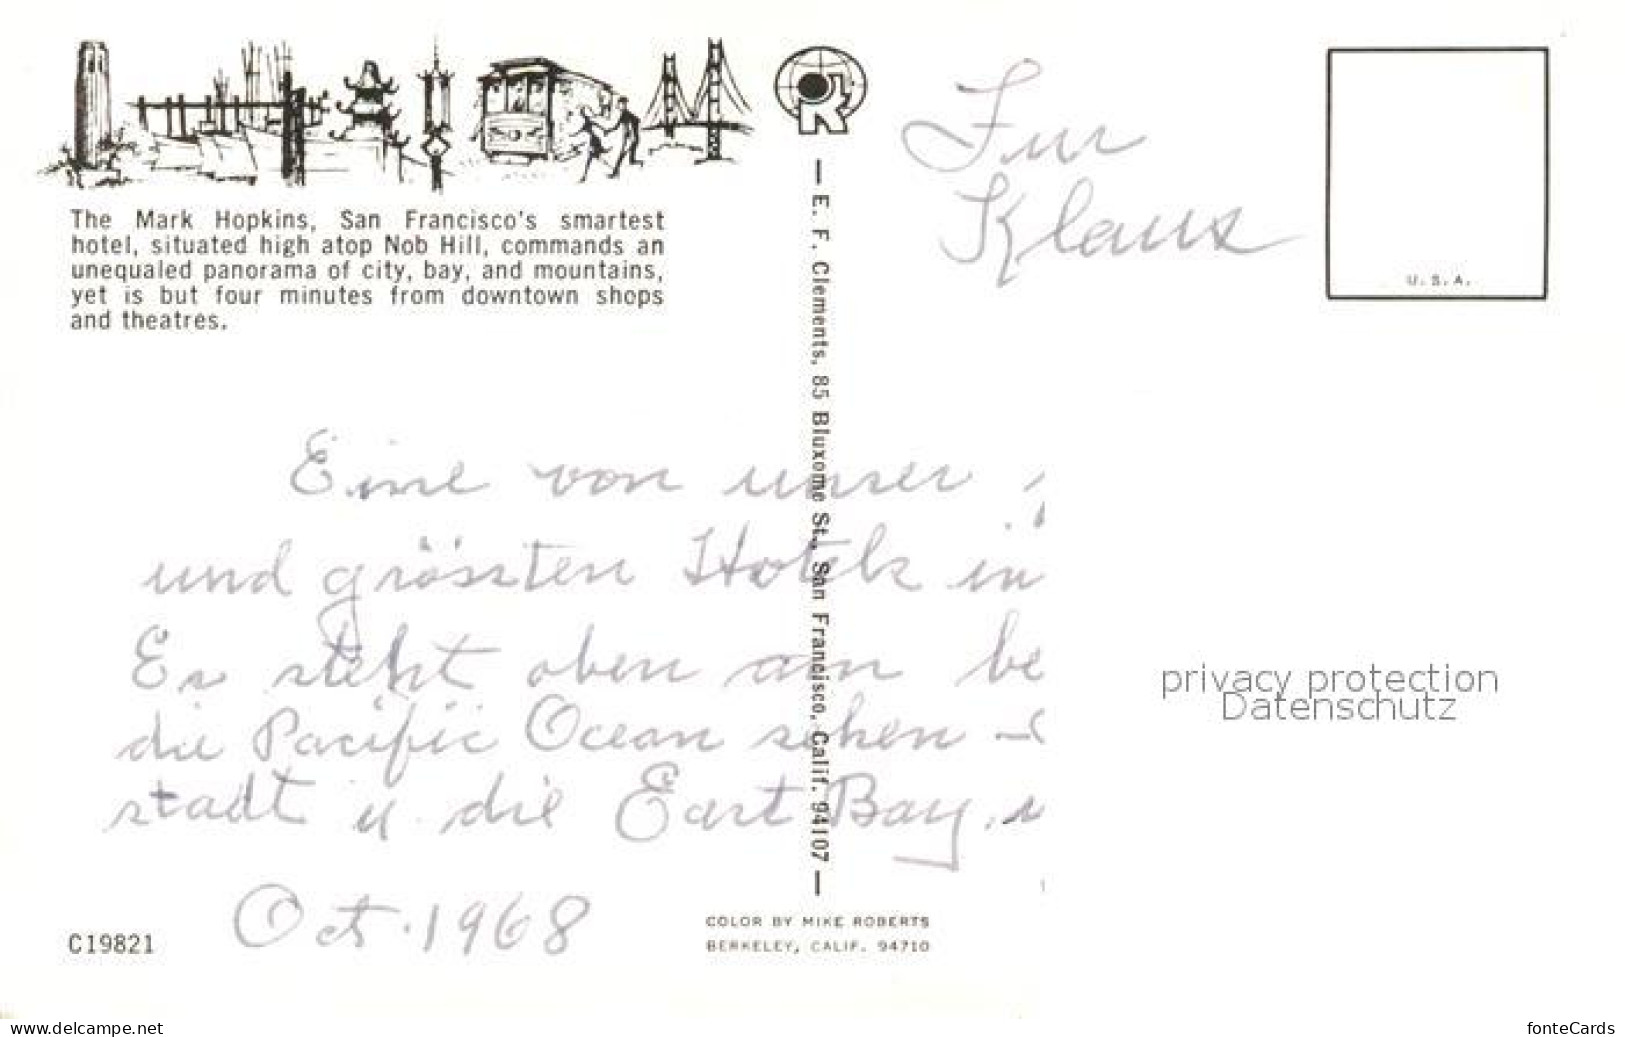 The Mark Hopkins, San Francisco's smartest
hotel, situated high atop Nob Hill, commands an
unequaled panorama of city, bay, and mountains,
yet is but four minutes from downtown shops
and theatres.
Fur
Klaus
U.S.A.
E. F. Clements, 85 Bluxome St., San Francisco, Calif. 94107
Eine von unser
und grössten Hotels in
Es steht oben am be
die Pacific Ocean sehen –
stadt u. die East Bay.
Oct. 1968
C19821
COLOR BY MIKE ROBERTS
BERKELEY, CALIF. 94710
privacy protection
Datenschutz
www.delcampe.net
fonteCards